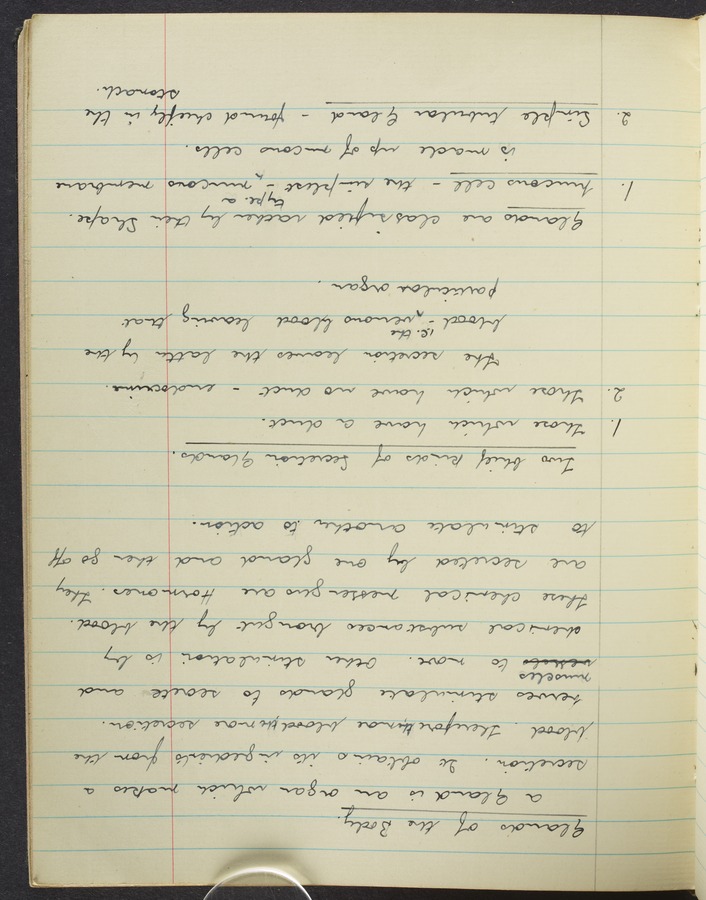 Glands of the Body.
a Gland is an organ which makes a
secretion. It obtains its ingredients from the
blood. Therefore more blood more secretion.
nerves stimulate glands to secrete and
muscles
to move. Other stimulation is by
chemical substances brought by the blood.
these chemical messengers are Hormones. they
are secreted by one gland and then go off
to stimulate another to action.
Two chief kinds of Secretion Glands.
1. Those which have a duct.
2. Those which have no duct - endocrine.
the secretion leaves the latter by the
i.e. the
blood - venous blood leaving that
particular organ.
Glands are classified rather by their Shape.
type. a
1. mucous cell - the simplest - mucous membrane
is made up of mucous cells.
2. Simple tubular Gland - found chiefly in the
stomach.